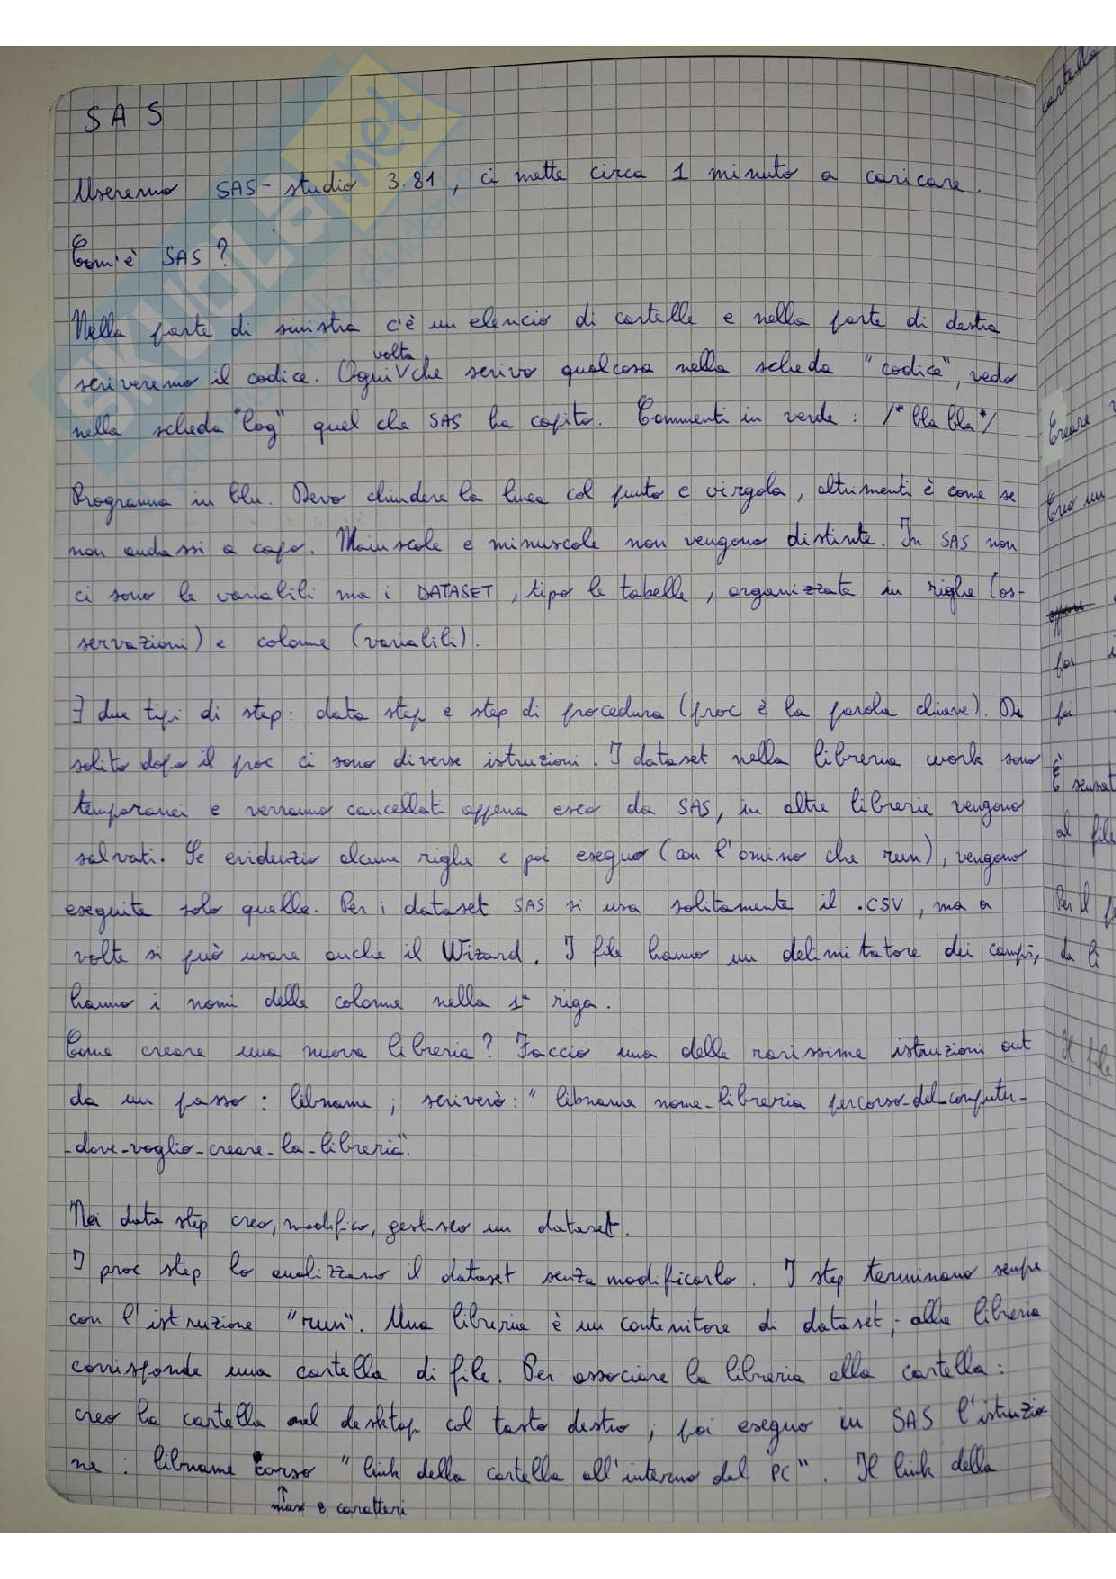 SAS
Useremo SAS-studio 3.81, ci mette circa 1 minuto a caricare.
Com'è SAS?
Nella parte di sinistra c'è un elenco di cartelle e nella parte di destra
scriveremo il codice. Ogni volta che scrivo qualcosa nella scheda "codice", vedo
nella scheda "log" quel che SAS ha capito. Commenti in verde: /*bla bla*/
Programma in blu. Devo chiudere la linea col punto e virgola, altrimenti è come se
non andassi a capo. Maiuscole e minuscole non vengono distinte. In SAS non
ci sono le variabili ma i DATASET, tipo le tabelle, organizzate in righe (os-
servazioni) e colonne (variabili).
∃ due tipi di step: data step e step di procedura (proc è la parola chiave). Di
solito dopo il proc ci sono diverse istruzioni. I dataset nella libreria work sono
temporanei e verranno cancellati appena esco da SAS, in altre librerie vengono
salvati. Se evidenzio alcune righe e poi eseguo (con l'omino che run), vengono
eseguite solo quelle. Per i dataset SAS si usa solitamente il .CSV, ma a
volte si può usare anche il Wizard. I file hanno un delimitatore dei campi,
hanno i nomi delle colonne nella 1ª riga.
Come creare una nuova libreria? Faccio una delle rarissime istruzioni out
da un passo: libname; scriverò: "libname nome-libreria percorso-del-computer-
-dove-voglio-creare-la-libreria".
Nei data step creo, modifico, gestisco un dataset.
I proc step lo analizzano il dataset senza modificarlo. I step terminano sempre
con l'istruzione "run". Una libreria è un contenitore di dataset; alla libreria
corrisponde una cartella di file. Per associare la libreria alla cartella:
creo la cartella sul desktop col tasto destro; poi eseguo in SAS l'istruzio
ne: libname corso "link della cartella all'interno del PC". Il link della
max 8 caratteri
cartella
Creare
Creo un
poi
poi
È
al file
Per il
da li
Il file
SKUOLA.net